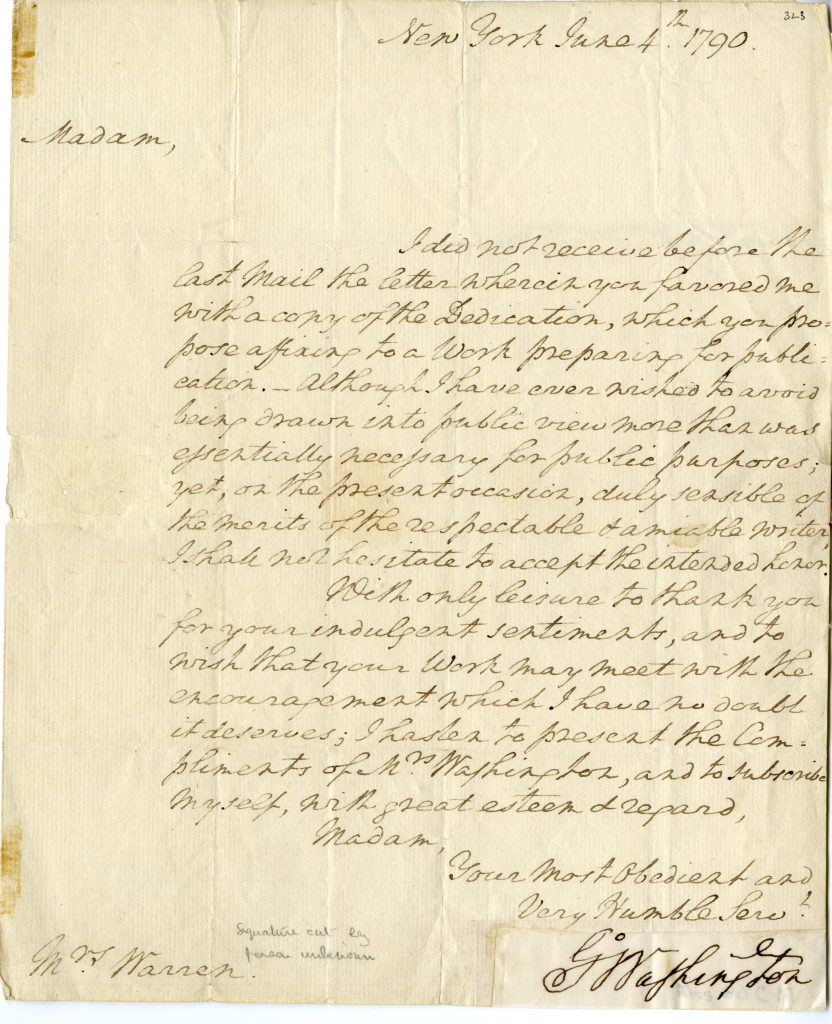 323
New York June 4th. 1790.
Madam,
I did not receive before the
last Mail the letter wherein you favored me
with a copy of the Dedication, which you pro=
pose affixing to a Work preparing for publi=
cation. — Although I have ever wished to avoid
being drawn into public view more than was
essentially necessary for public purposes;
yet, on the present occasion, duly sensible of
the merits of the respectable & amiable writer,
I shall not hesitate to accept the intended honor.
With only leisure to thank you
for your indulgent sentiments, and to
wish that your Work may meet with the
encouragement which I have no doubt
it deserves; I hasten to present the Com=
pliments of Mrs Washington, and to subscribe
myself, with great esteem & regard,
Madam,
Your Most Obedient and
Very Humble Servt.
Signature cut by
person unknown
Mrs Warren.
Go Washington